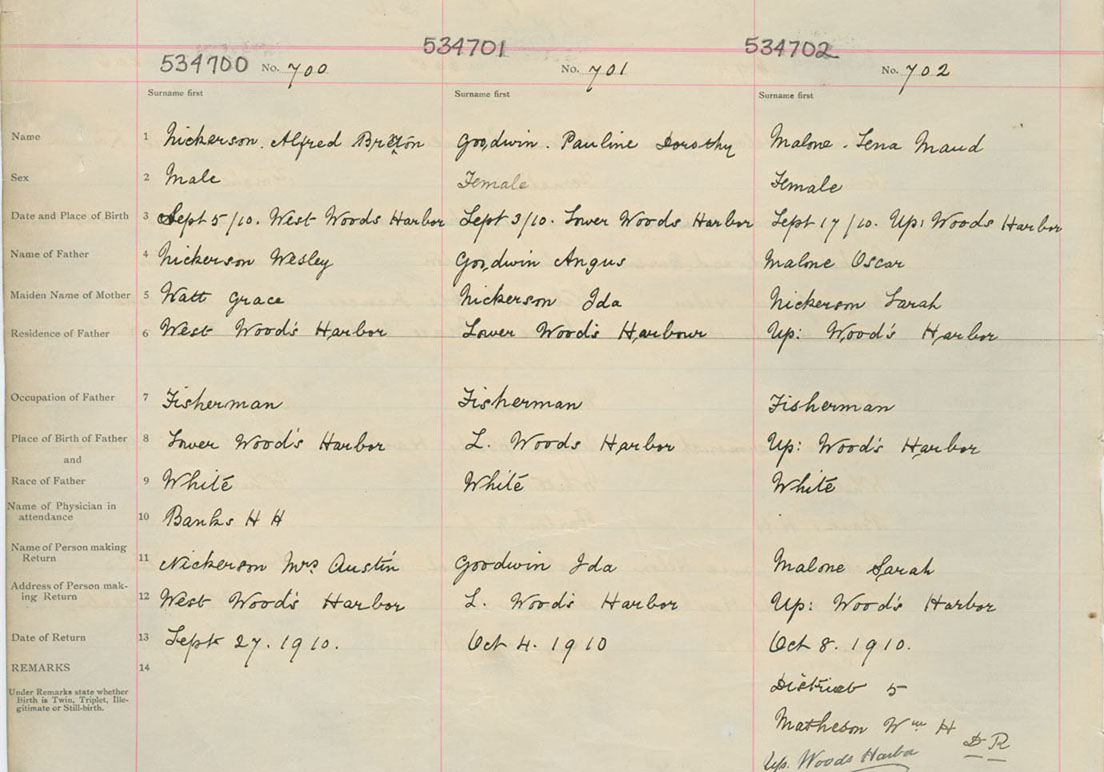 534700 No. 700 534701 No. 701 534702 No. 702
Surname first Surname first Surname first
Name 1 Nickerson. Alfred Goodwin. Pauline Dorothy Malone. Lena Maud
Sex 2 Male Female Female
Date and Place of Birth 3 Sept 5/10. West Woods Harbor Sept 3/10. Lower Woods Harbor Sept 17/10. Up: Woods Harbor
Name of Father 4 Nickerson Wesley Goodwin Angus Malone Oscar
Maiden Name of Mother 5 Watt Grace Nickerson Ida Nickerson Sarah
Residence of Father 6 West Wood's Harbor Lower Wood's Harbour Up: Wood's Harbor
Occupation of Father 7 Fisherman Fisherman Fisherman
Place of Birth of Father 8 Lower Wood's Harbor L. Woods Harbor Up: Wood's Harbor
and
Race of Father 9 White White White
Name of Physician in
attendance 10 Banks H H
Name of Person making
Return 11 Nickerson Mrs Austin Goodwin Ida Malone Sarah
Address of Person mak-
ing Return 12 West Wood's Harbor L. Wood's Harbor Up: Wood's Harbor
Date of Return 13 Sept 27. 1910. Oct 4. 1910 Oct 8. 1910.
REMARKS 14
Under Remarks state whether
Birth is Twin, Triplet, Ille-
gitimate or Still-birth.
District 5
Matheson Wm H D R
Up. Woods Harbor